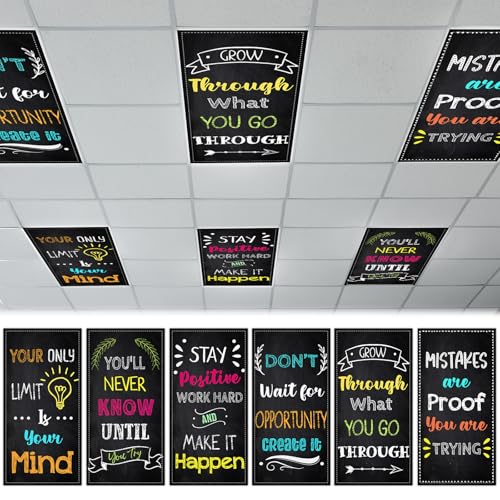 N'T
t for
ORTUNITY
Create it
GROW
Through
What
YOU GO
THROUGH
MISTAKES
are
Proof
You are
TRYING
YOUR ONLY
LIMIT
Is
Your
Mind
STAY
Positive
WORK HARD
AND
MAKE IT
Happen
YOU'LL
NEVER
KNOW
UNTIL
You Try
YOUR ONLY
LIMIT
Is
Your
Mind
YOU'LL
NEVER
KNOW
UNTIL
You Try
STAY
Positive
WORK HARD
AND
MAKE IT
Happen
DON'T
Wait for
OPPORTUNITY
Create it
GROW
Through
What
YOU GO
THROUGH
MISTAKES
are
Proof
You are
TRYING